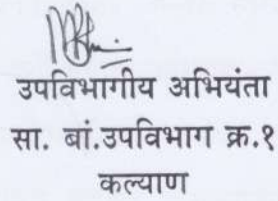 उपविभागीय अभियंता
सा. बां.उपविभाग क्र.१
कल्याण